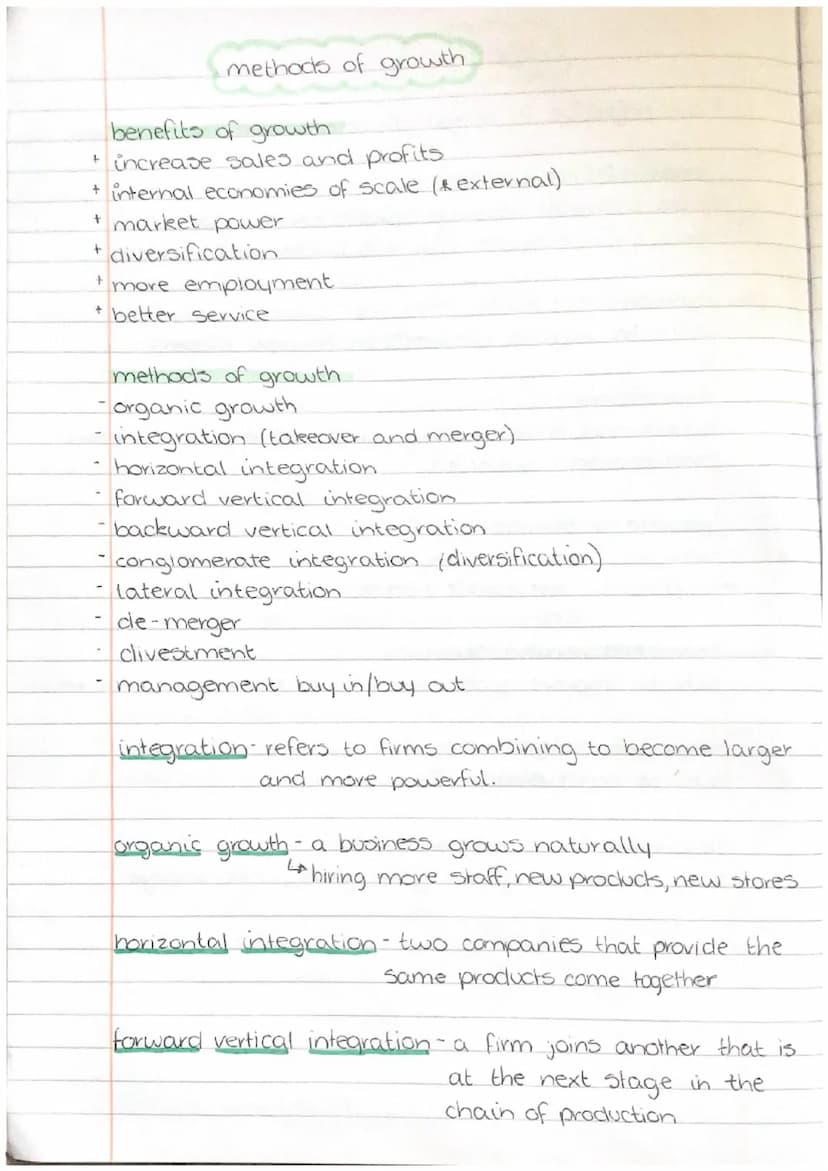 methods of growth
benefits of growth
+ increase sales and profits
+ internal economies of scale (& external)
+ market power
+ diversification
+ more employment
+ better service
methods of growth
- organic growth
- integration (takeover and merger)
- horizontal integration
- forward vertical integration
- backward vertical integration
- conglomerate integration (diversification)
- lateral integration
- de-merger
- divestment
- management buy in/buy out
integration - refers to firms combining to become larger
and more powerful.
organic growth - a business grows naturally
↳ hiring more staff, new products, new stores
horizontal integration - two companies that provide the
same products come together
forward vertical integration - a firm joins another that is
at the next stage in the
chain of production